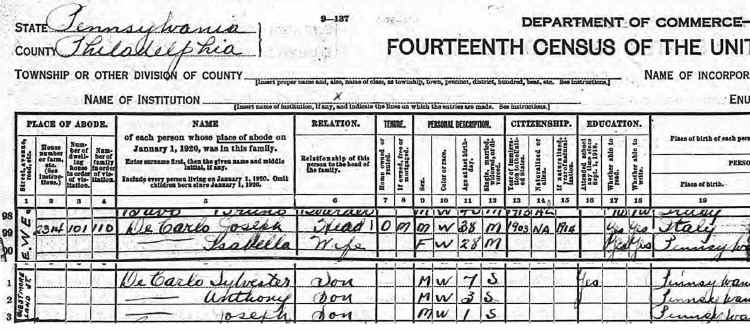 9-137
STATE Pennsylvania
COUNTY Philadelphia
DEPARTMENT OF COMMERCE—
FOURTEENTH CENSUS OF THE UNIT
TOWNSHIP OR OTHER DIVISION OF COUNTY
[Insert proper name and, also, name of class, as township, town, precinct, district, hundred, beat, etc. See instructions.]
NAME OF INCORPOR
NAME OF INSTITUTION x
[Insert name of institution, if any, and indicate the lines on which the entries are made. See instructions.]
ENU
PLACE OF ABODE. NAME RELATION. TENURE. PERSONAL DESCRIPTION. CITIZENSHIP. EDUCATION.
Street, avenue, road, etc.
House number or farm, etc. (See instructions.)
Number of dwelling house in order of visitation.
Number of family in order of visitation.
of each person whose place of abode on January 1, 1920, was in this family.
Enter surname first, then the given name and middle initial, if any.
Include every person living on January 1, 1920. Omit children born since January 1, 1920.
Relationship of this person to the head of the family.
Home owned or rented.
If owned, free or mortgaged.
Sex.
Color or race.
Age at last birthday.
Single, married, widowed, or divorced.
Year of immigration to the United States.
Naturalized or alien.
If naturalized, year of naturalization.
Attended school any time since Sept. 1, 1919.
Whether able to read.
Whether able to write.
Place of birth of each pers
PERSON
Place of birth.
1 2 3 4 5 6 7 8 9 10 11 12 13 14 15 16 17 18 19
98 Boarder M W M
99 2314 101 110 De Carlo Joseph Head 1 O M M W 38 M 1903 NA 1914 Yes Yes Italy
00 — Isabella Wife F W 28 M Yes Yes Pennsylvan
1 De Carlo Sylvester Son M W 7 S Yes Pennsylvan
2 — Anthony Son M W 3 S Pennsylvan
3 — Joseph Son M W 1 S Pennsylva